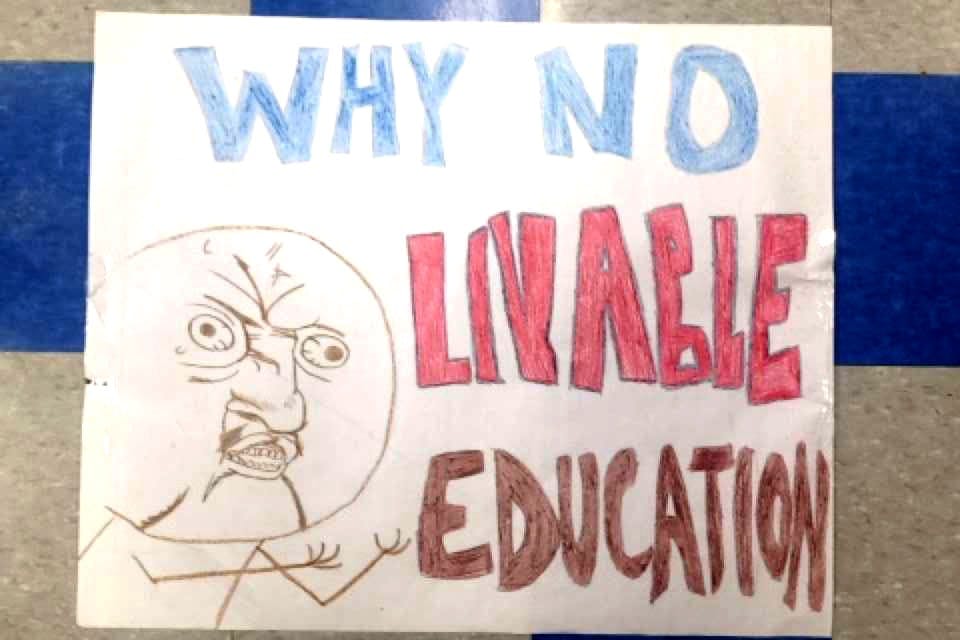 WHY NO
LIVABLE
EDUCATION